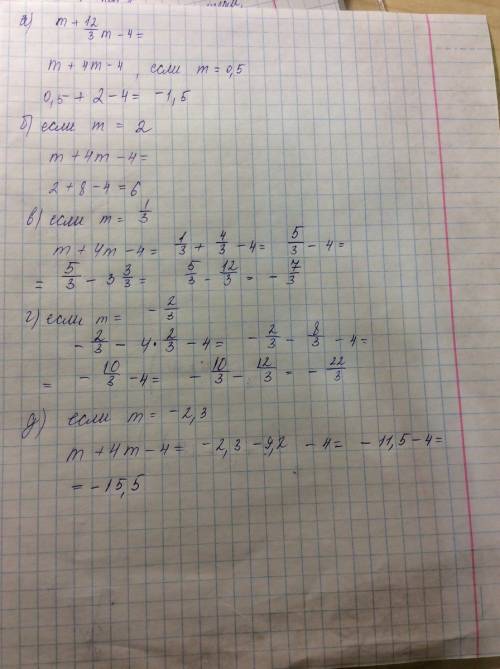 а) m + 12/3 m - 4 =
m + 4m - 4 , если m = 0,5
0,5 + 2 - 4 = -1,5
б) если m = 2
m + 4m - 4 =
2 + 8 - 4 = 6
в) если m = 1/3
m + 4m - 4 = 1/3 + 4/3 - 4 = 5/3 - 4 =
= 5/3 - 3 3/3 = 5/3 - 12/3 = - 7/3
г) если m = - 2/3
- 2/3 - 4 · 2/3 - 4 = - 2/3 - 8/3 - 4 =
= - 10/3 - 4 = - 10/3 - 12/3 = - 22/3
д) если m = -2,3
m + 4m - 4 = -2,3 - 9,2 - 4 = -11,5 - 4 =
= -15,5